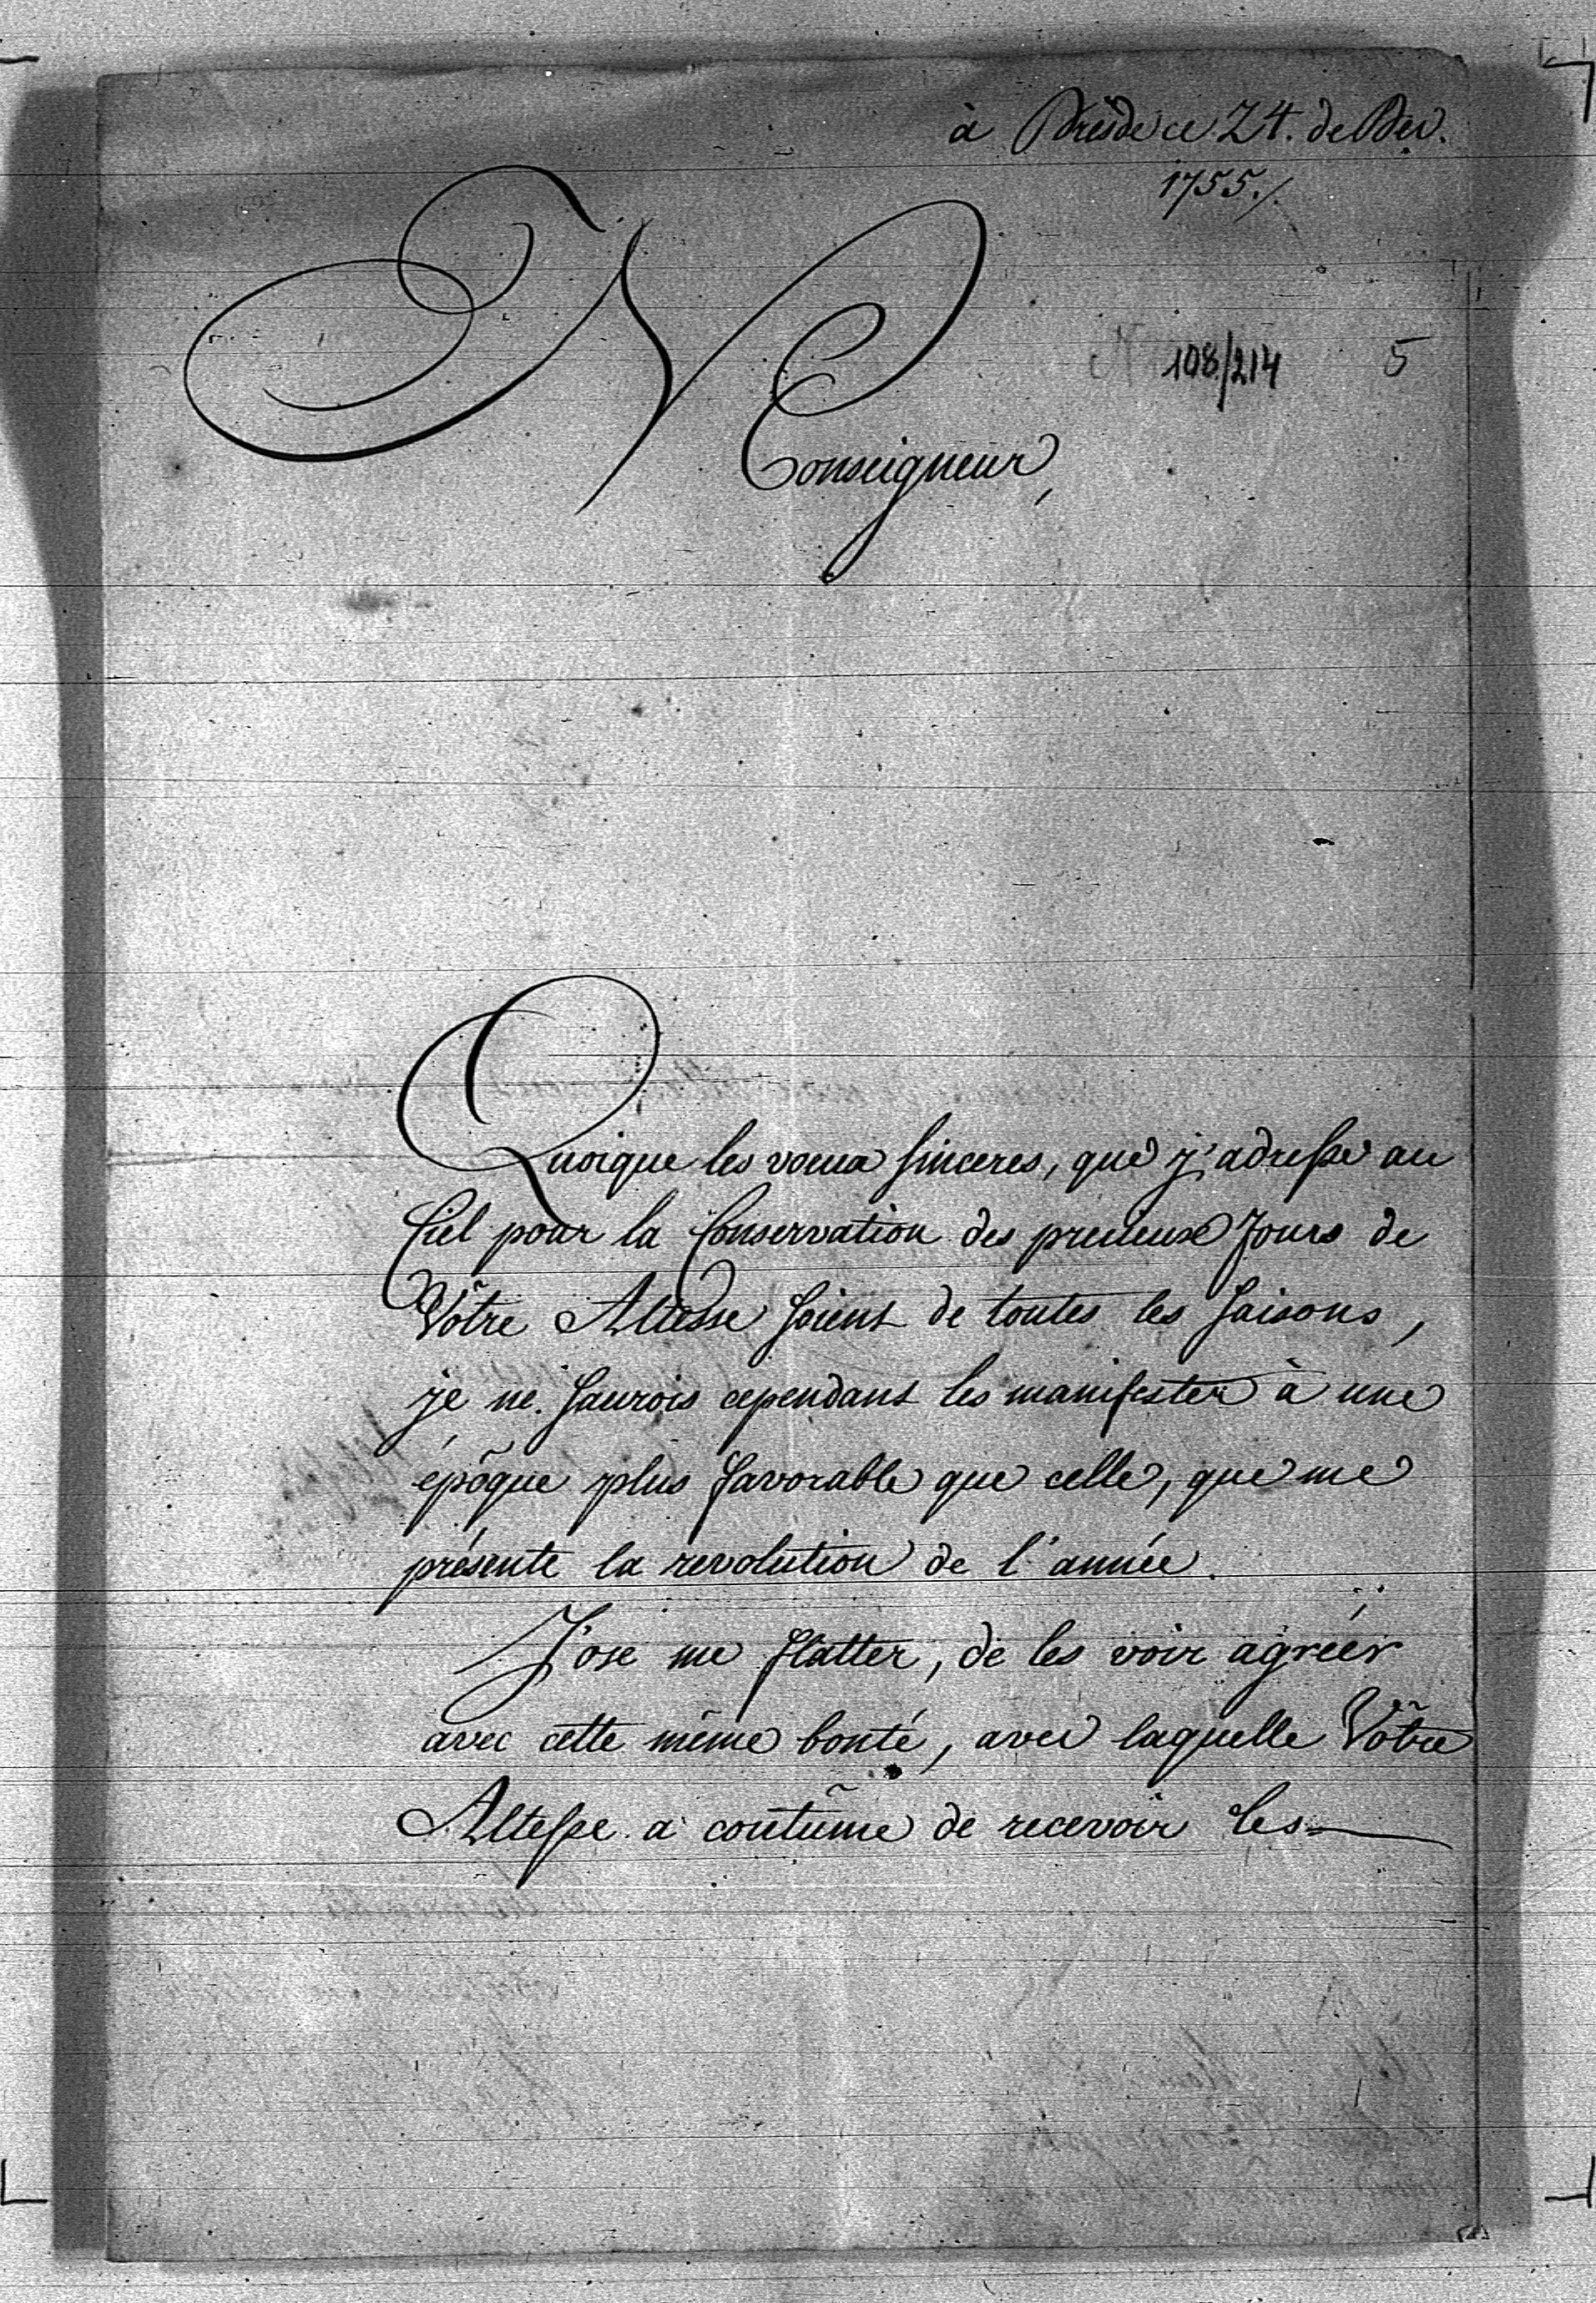 à Dresde ce 24. de Dec.
1755./.
108/214 5
Monseigneur,
Quoique les voeux sinceres, que j'adresse au
Ciel pour la Conservation des precieux Jours de
Vôtre Altesse soient de toutes les saisons,
je ne saurois cependant les manifester à une
épôque plus favorable que celle, que me
présente la revolution de l'année.
J'ose me flatter, de les voir agréér
avec cette même bonté, avec laquelle Vôtre
Altesse a coutûme de recevoir les